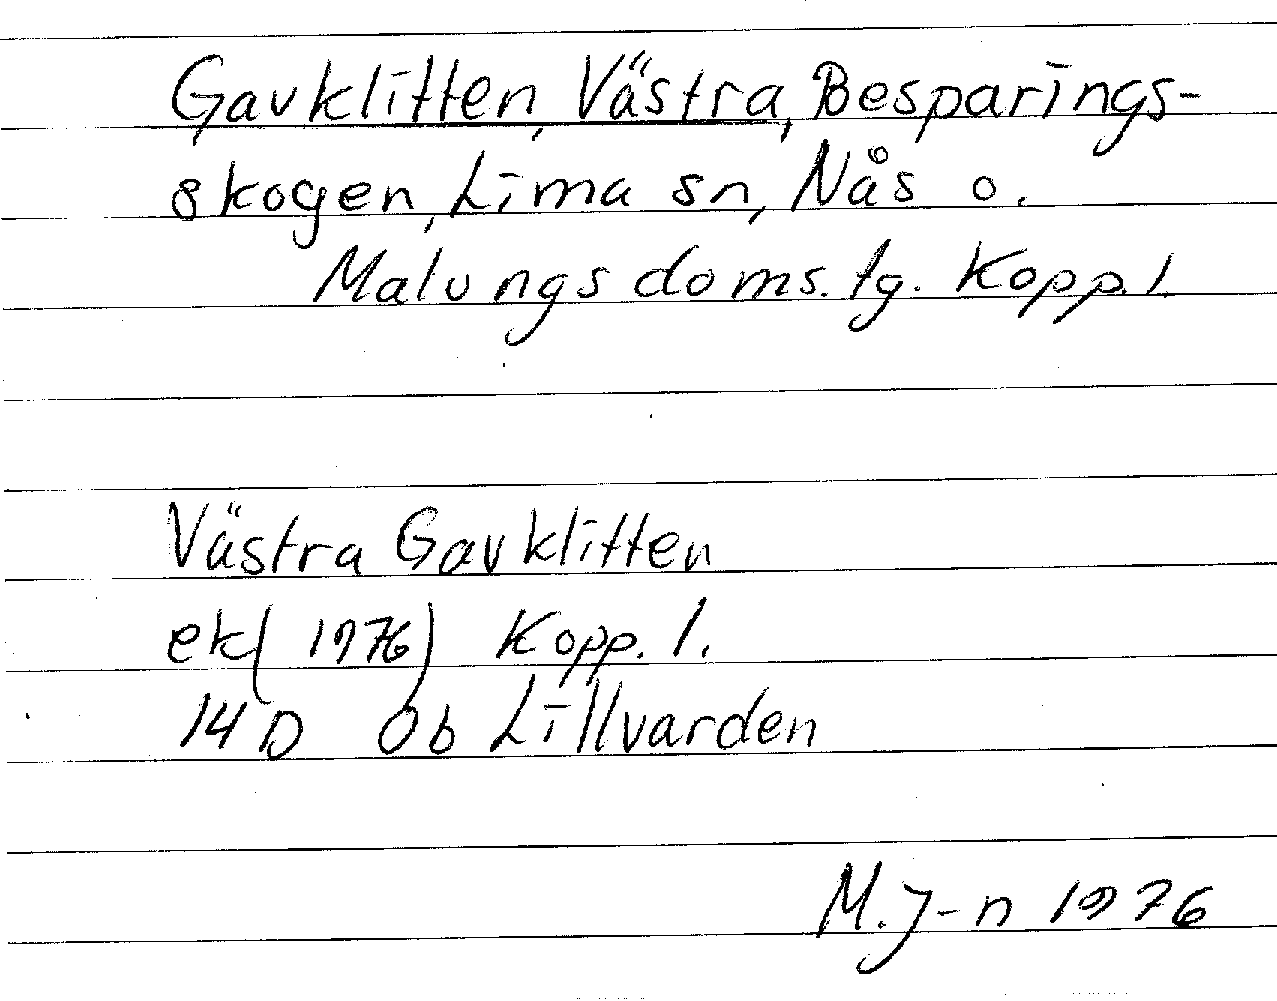 Gavklitten, Västra, Besparings-
skogen, Lima sn, Nås o.
Malungs doms. tg. Kopp. l.
Västra Gavklitten
ek (1976) Kopp. l.
14 D 0b Lillvarden
M. J-n 1976